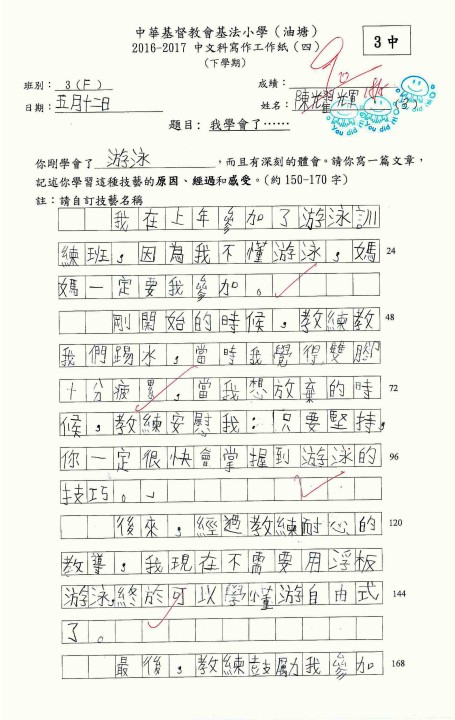 中華基督教會基法小學（油塘）
2016-2017 中文科寫作工作紙（四）
（下學期）
3中
班別： 3(F)
成績： 90
日期： 五月十二日
姓名： 陳光輝 (3)
題目： 我學會了……
你剛學會了 游泳 ，而且有深刻的體會。請你寫一篇文章，
記述你學習這種技藝的原因、經過和感受。（約 150-170 字）
註：請自訂技藝名稱
我在上年參加了游泳訓
練班，因為我不懂游泳，媽 24
媽一定要我參加。
剛開始的時候，教練教 48
我們踢水，當時我覺得雙腳
十分疲累，當我想放棄的時 72
候，教練安慰我：只要堅持，
你一定很快會掌握到游泳的 96
技巧。」
後來，經過教練耐心的 120
教導，我現在不需要用浮板
游泳，終於可以學懂游自由式 144
了。
最後，教練鼓勵我參加 168